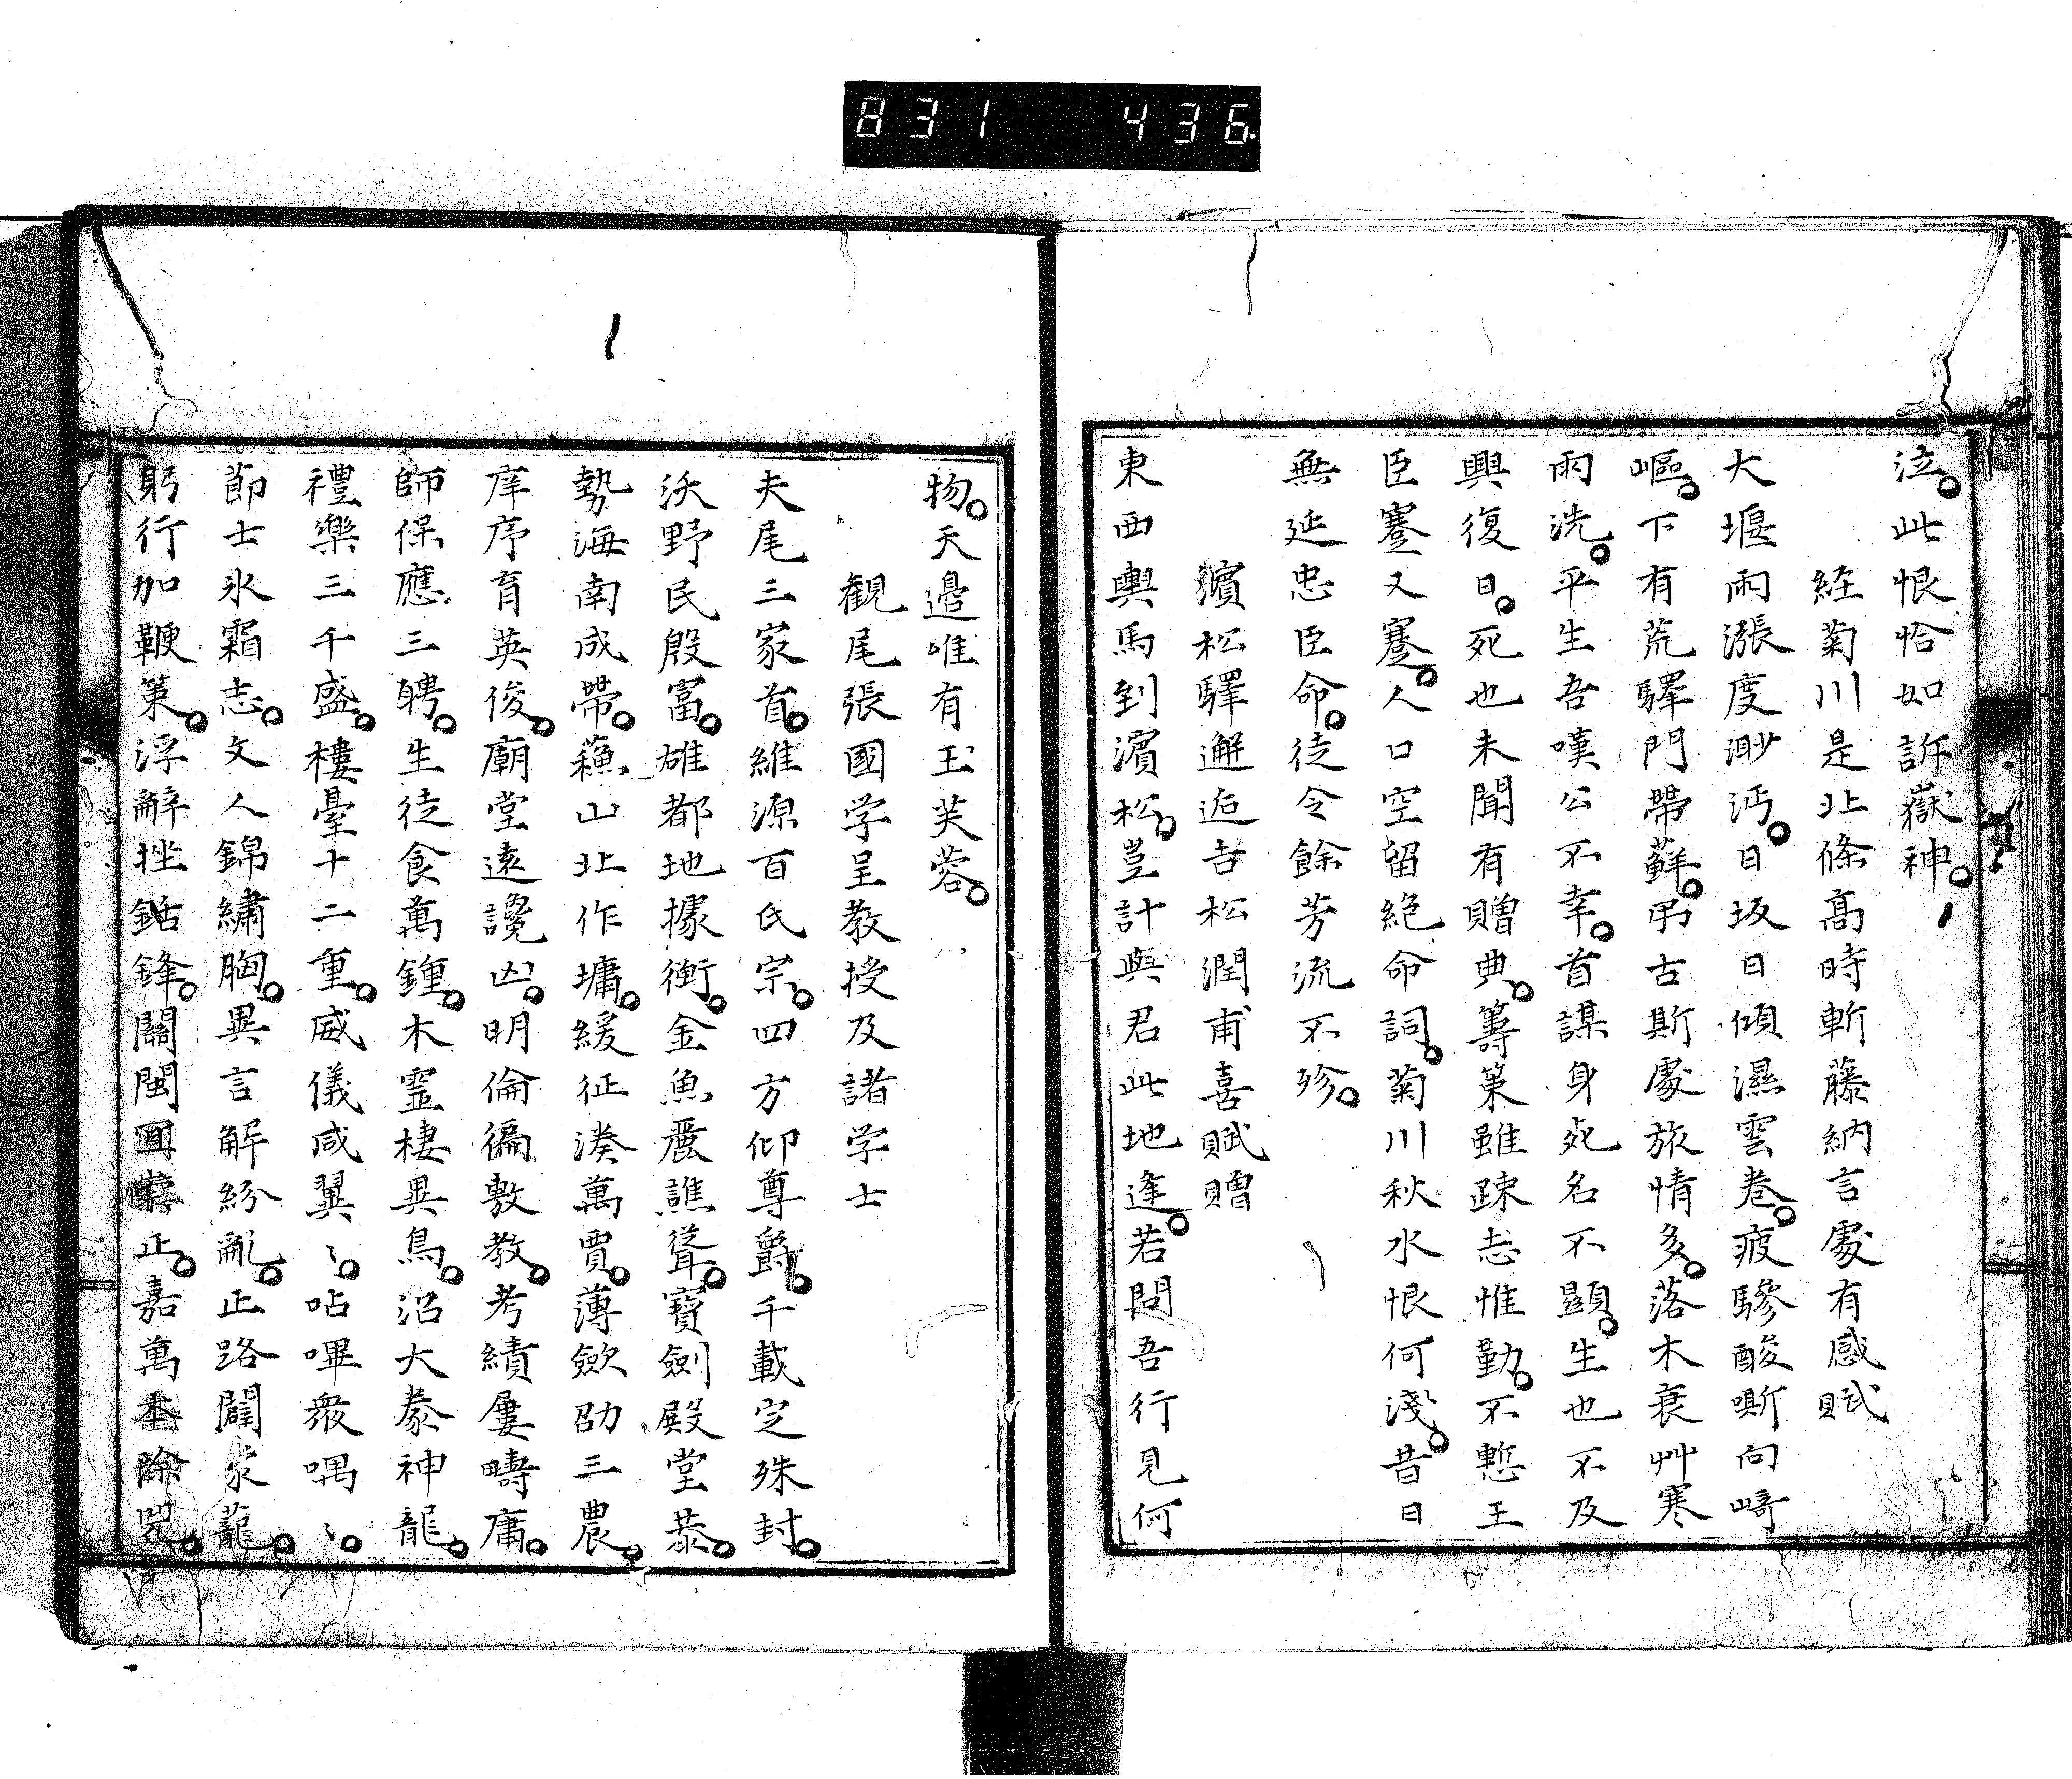 831 436
泣。此恨恰如訴嶽神。
経菊川是北條高時斬藤納言處有感賦
大堰雨漲度渺沔。日坂日傾濕雲巻。疲驂酸嘶向崎
嶇。下有荒驛門帶蘚。弔古斯處旅情多。落木衰艸寒
雨洗。平生吾嘆公不幸。首謀身死名不顕。生也不及
興復日。死也未聞有贈典。籌策雖疎志惟勤。不慙王
臣蹇又蹇。人口空留絶命詞。菊川秋水恨何淺。昔日
無延忠臣命。徒令餘芳流不殄。
濱松驛邂逅吉松潤甫喜賦贈
東西輿馬到濱松。豈計與君此地逢。若問吾行見何
物。天邉唯有玉芙蓉。
観尾張國学呈教授及諸学士
夫尾三家首。維源百氏宗。四方仰尊爵。千載定殊封。
沃野民殷富。雄都地據衝。金魚震譙聳。寶劍殿堂恭。
勢海南成帶。蘓山北作墉。緩征湊萬賈。薄斂劭三農。
庠序育英俊。廟堂遠讒凶。明倫徧敷教。考績屢疇庸。
師保應三聘。生徒食萬鍾。木靈棲異鳥。沼大豢神龍。
禮樂三千盛。樓臺十二重。威儀咸翼〻。呫嗶衆喁〻。
節士氷霜志。文人錦繡胸。異言解紛亂。正路闢蒙蘢。
躬行加鞭策。浮辭挫銛鋒。關閩回正。嘉萬除兇。